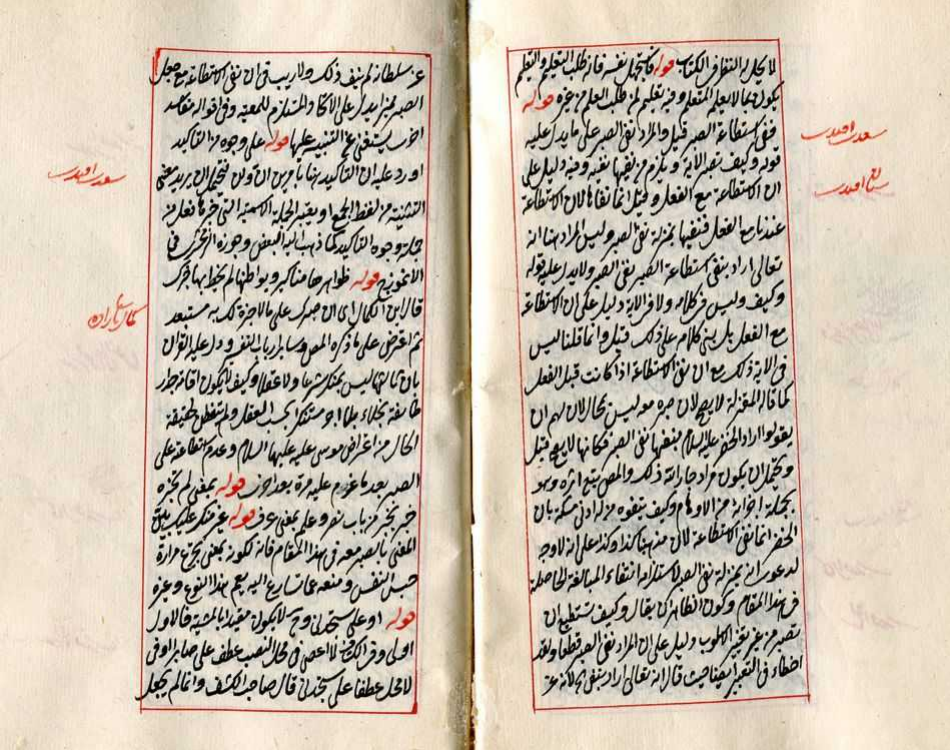 لا يخل بالنظر في الكتاب قوله فاستجهل نفسه فانه طلب التعليم والتعلم
يكون بما لا يعلم المتعلم وفيه تعليم لمن طلب العلم من غيره قوله
نفى استطاعة الصبر قيل والمراد نفى الصبر على ما يدل عليه
قوله وكيف تصبر الآية ويلزم من نفيها نفيه وفيه دليل على
ان الاستطاعة مع الفعل وقيل انما نفاها لان الاستطاعة
عندنا مع الفعل فنفيها بمنزلة نفى الصبر وليس المراد هنا انه
تعالى اراد بنفى استطاعة الصبر نفى الصبر ولا يدل عليه قوله
وكيف وليس فى كلامه ولا فى الآية دليل على ان الاستطاعة
مع الفعل بل بنى كلامه على ذلك قيل وانما قلنا ليس
فى الآية ذلك مع ان نفى الاستطاعة اذا كانت قبل الفعل
كما قاله المعتزلة لا يصح لان صبره معه ليس بمحال لان لهم ان
يقولوا اراد الخضر عليه السلام بنفيها نفى الصبر فكانها لا يصح قبل
ويحتمل ان يكون مراد جار الله ذلك والمص يتبع اثره وهو
بجملة اخوانه من الاوهام وكيف يتفوه من له ادنى مسكة بان
الخضر انما نفى الاستطاعة لان مذهبنا كذا وكذا على انه لا وجه
لدعوى انه بمنزلة نفى الصبر لاستلزامه انتفاء المبالغة الحاصلة
فى هذا المقام وكون الظاهر ان يقال وكيف تستطيع ان
تصبر من غير تغيير الاسلوب دليل على ان المراد نفى الصبر قطعا ولقد
اخطاء فى التعبير حيث قال انه تعالى اراد بنفى لانه عز
سعدى افندى
افندى
عز سلطانه لم ينف ذلك ولا ريب فى ان نفى الاستطاعة مع جعل
الصبر يدل على
اخرى يستغنى عن التنبيه عليها قوله على وجوه من التاكيد
اورد عليه ان التاكيد هنا بان ولن فيحتمل ان يريد معنى
التثنية من لفظ الجمع او يعتبر الجملة الاسمية التى خبرها فعل من
جملة وجوه التاكيد كما ذهب اليه البعض وجوزه الزمخشرى فى
قوله ظواهرها مناكير وبواطنها لم يحط بها خبرك
قال ابن الكمال اى ان صبرك على ما لا خبرة لك به مستبعد
ثم اعترض على ما ذكره المص وسائر ارباب التفسير ودل عليه القرآن
بان ليس بمنكر شرعا ولا عقلا وكيف لا يكون اقامة جدار
طائفة بخلاء بلا اجر مستنكرا بحسب العقل ولم يتفطن لحقيقة
الحال من اعتراض موسى عليه عليهما السلام وعدم استطاعته على
الصبر بعد ما عزم عليه مرة بعد اخرى قوله بمعنى لم تخبره
خبر يخبر من باب نصر وعلم بمعنى عرف قوله غير منكر عليك
المعنى بالصبر معه فى هذا المقام فانه لكونه بمعنى تجرع مرارة
حبس النفس ومنعه عما تسارع اليه يعم هذا النوع وغيره
قوله او على ستجدنى وح لا يكون مقيدا بالمشية فالاول
اولى وفى الكشاف لا اعصى فى محل النصب عطف على صابرا او فى
لا محل عطفا على ستجدنى قال صاحب الكشف وانما لم يجعل
سعدى افندى
كمال پاشا زاده